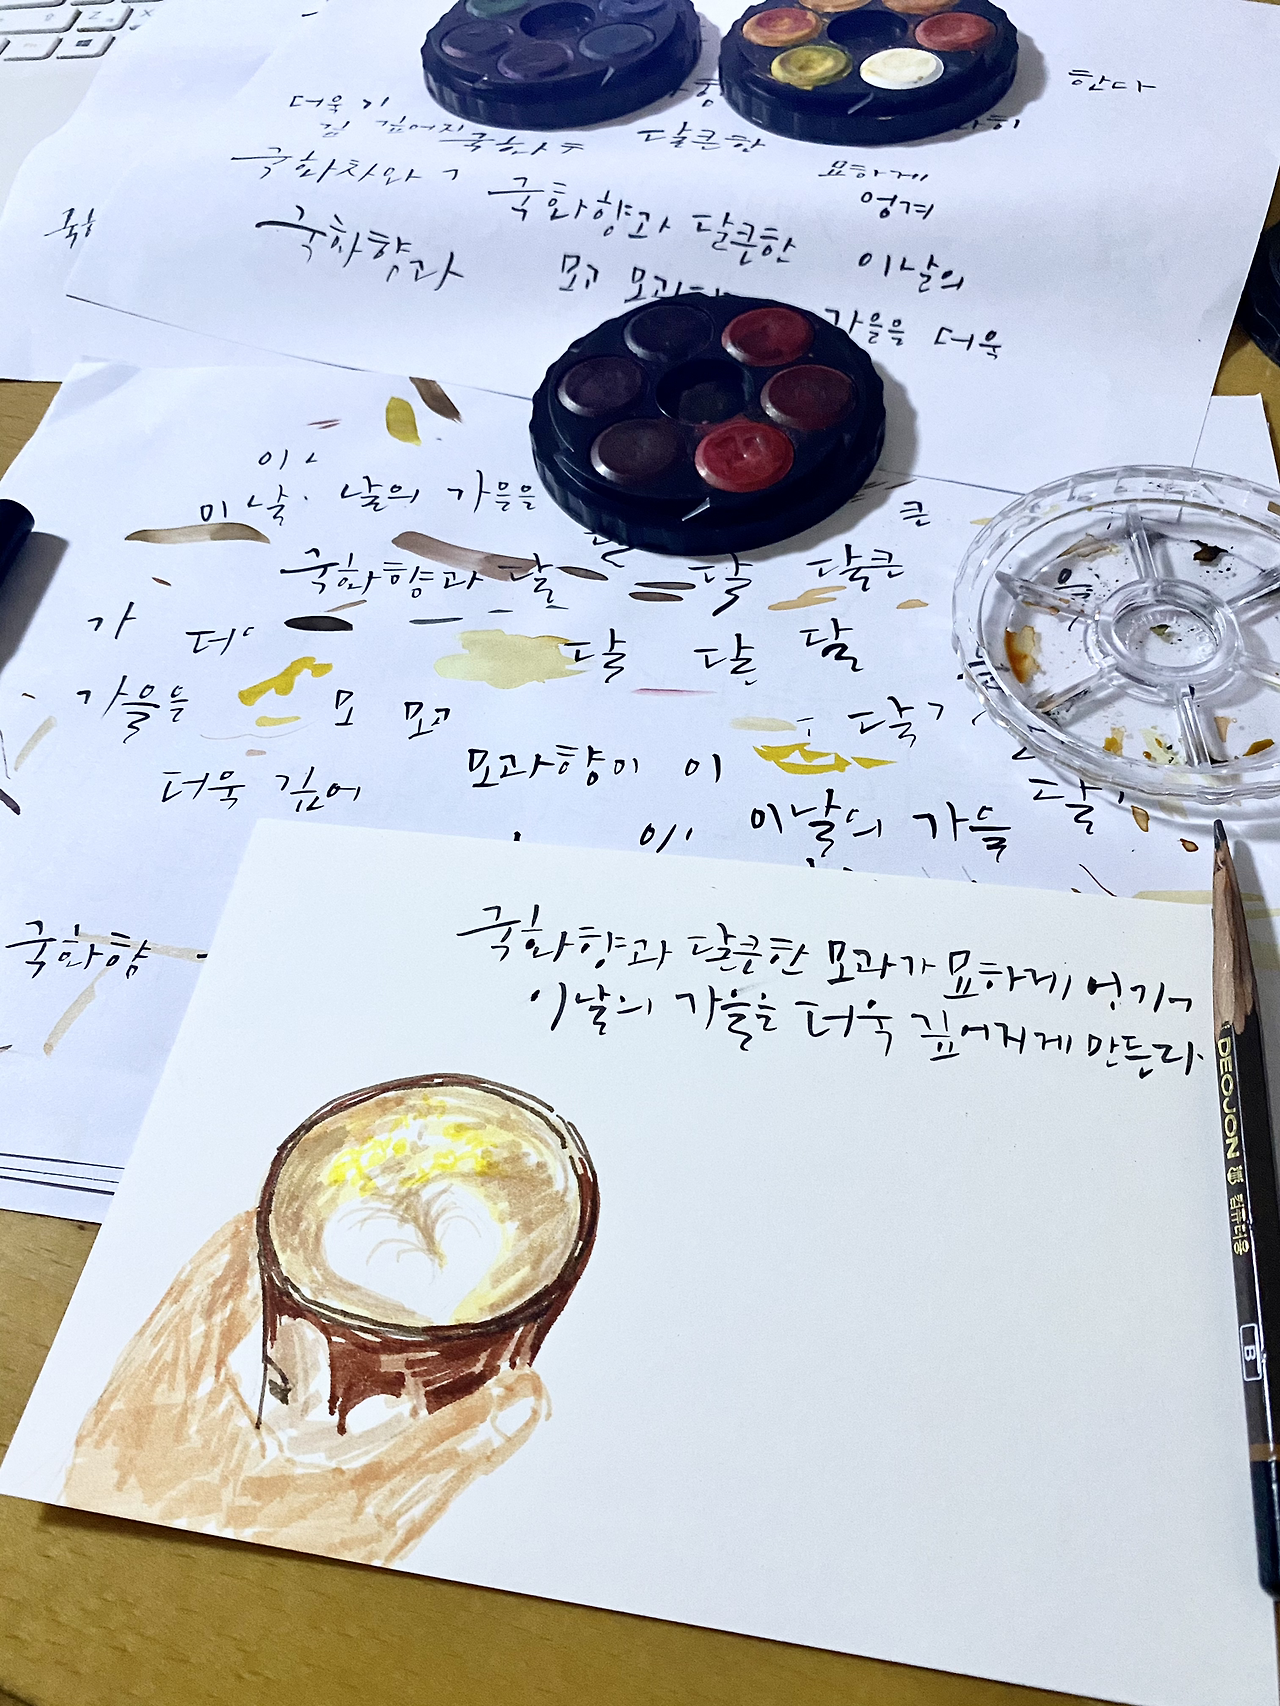 한다
더욱 기
깊 깊어지 국화
달큰한
국화차와
묘하게
엉겨
국화향과 달큰한
이날의
국화향과
모과
가을을 더욱
이
이날 날의 가을을
큰
국화향과 달
달 달큰
가 더
달 달 달
가을을
모 모과
달
모과향이 이
더욱 깊어
이날의 가을
달
국화향
국화향과 달큰한 모과가 묘하게 엉기어
이날의 가을을 더욱 깊어지게 만든다.
DEOJON 컴퓨터용
B